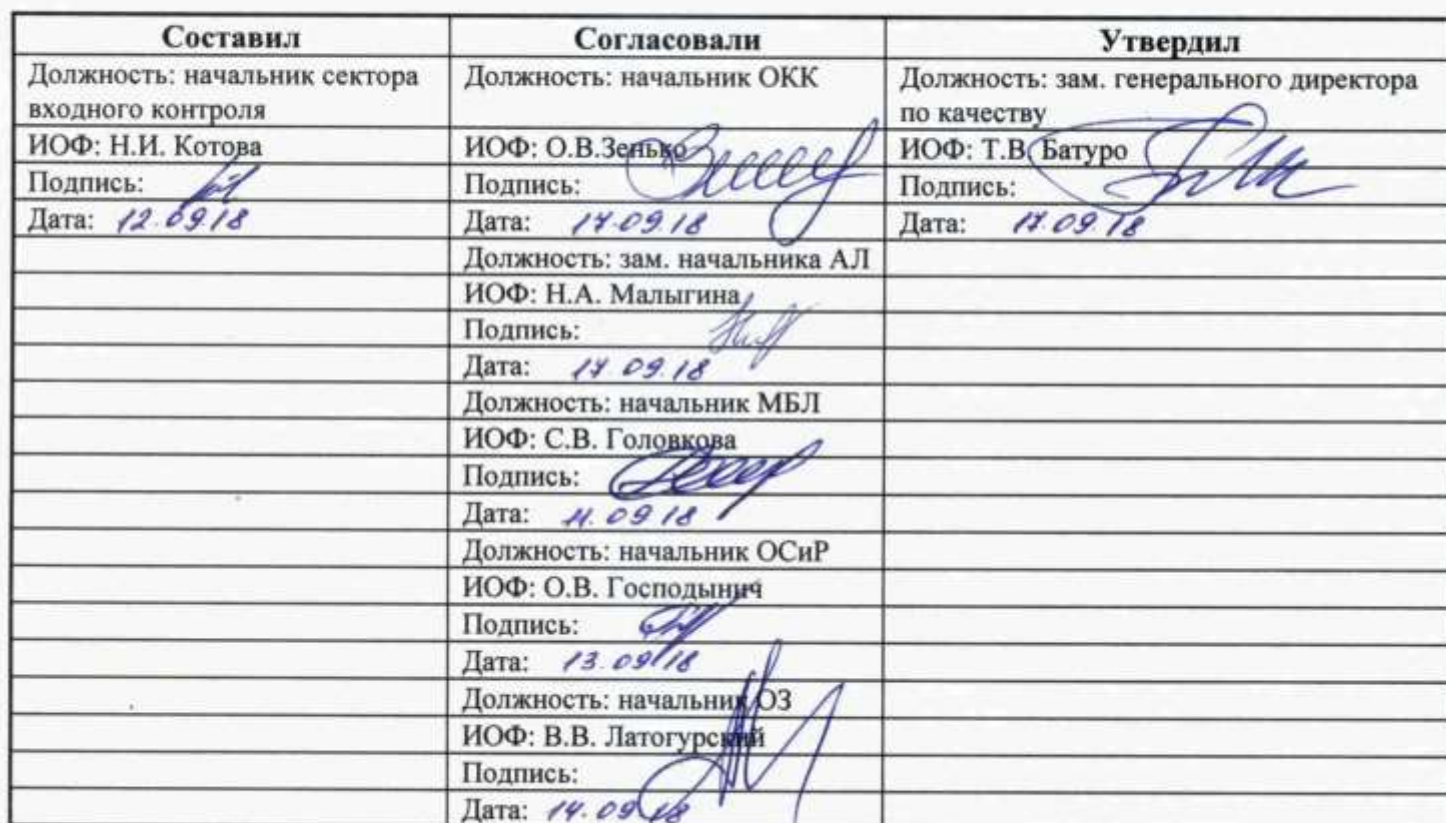 Составил Согласовали Утвердил
Должность: начальник сектора Должность: начальник ОКК Должность: зам. генерального директора
входного контроля по качеству
ИОФ: Н.И. Котова ИОФ: О.В.Зенько ИОФ: Т.В. Батуро
Подпись: Подпись: Подпись:
Дата: 12.09.18 Дата: 17.09.18 Дата: 17.09.18
Должность: зам. начальника АЛ
ИОФ: Н.А. Малыгина
Подпись:
Дата: 17.09.18
Должность: начальник МБЛ
ИОФ: С.В. Головкова
Подпись:
Дата: 09.18
Должность: начальник ОСиР
ИОФ: О.В. Господынич
Подпись:
Дата: 13.09.18
Должность: начальник ОЗ
ИОФ: В.В. Латогурский
Подпись:
Дата: 14.09.18